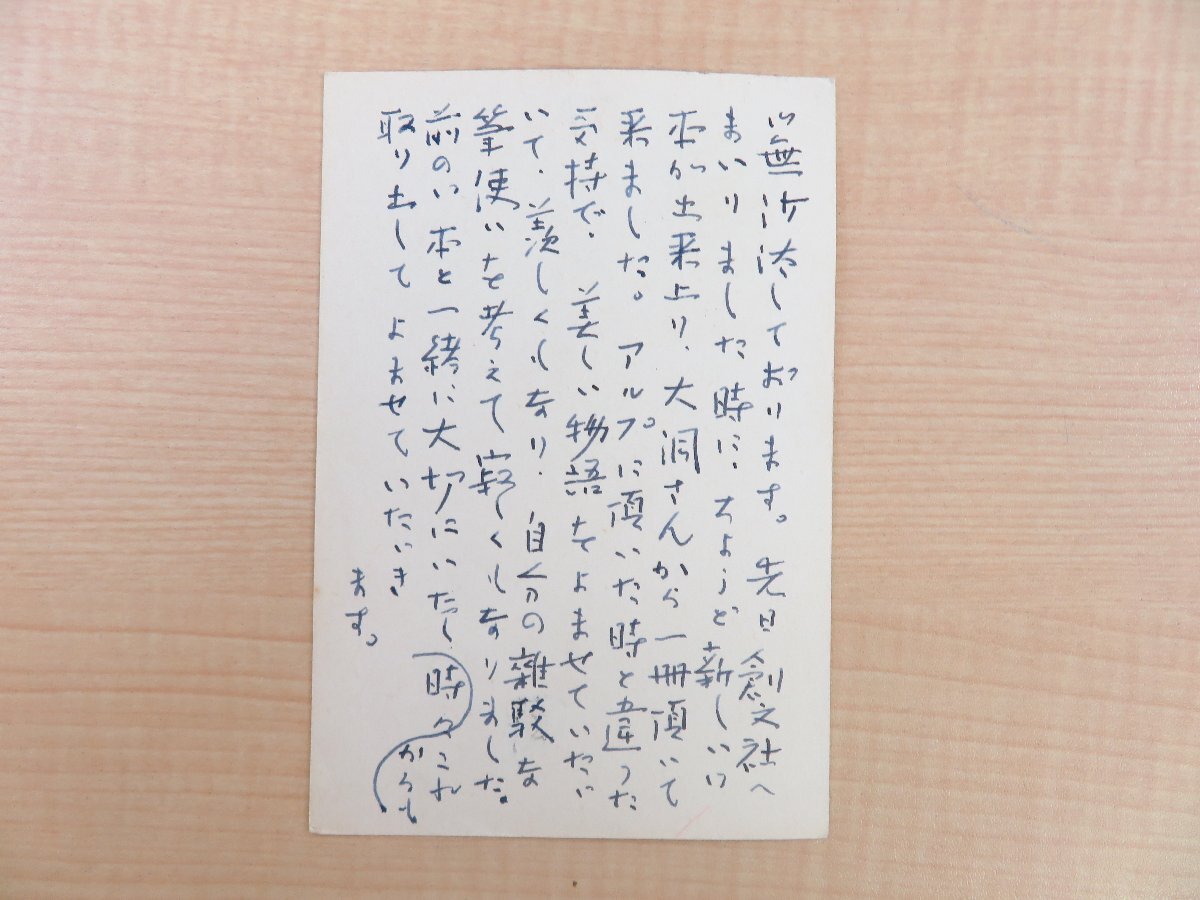 御無沙汰しております。先日創文社へ
まいりました時に、ちょうど新しい御
本が出来上り、大洞さんから一冊頂いて
来ました。アルプに頂いた時と違った
気持で、美しい物語をよませていただ
いて、羨しくもなり、自分の雑駁な
筆使いを考えて寂しくもなりました。
前の御本と一緒に大切にいたし時々これ
からも
取り出してよませていただき
ます。